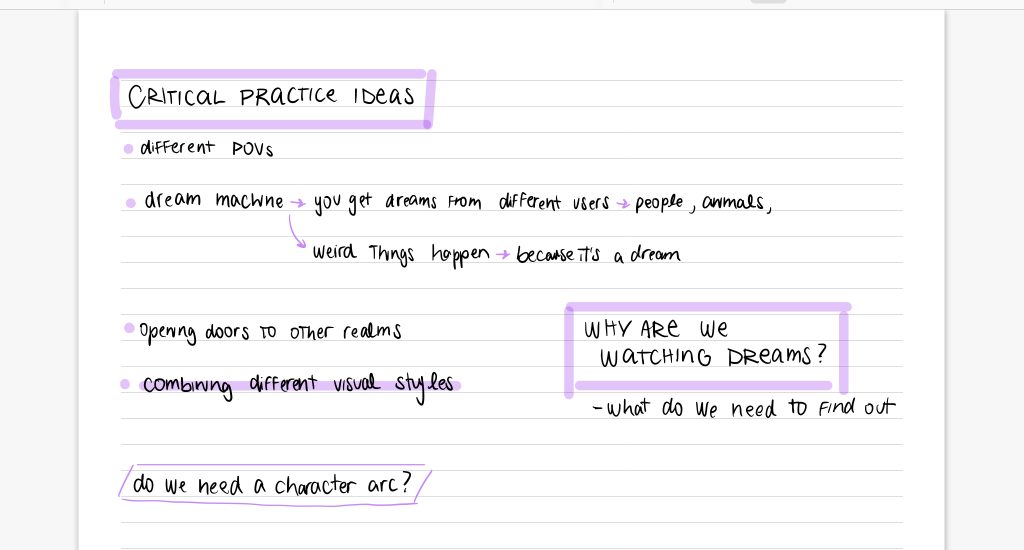 CRITICAL PRACTICE IDEAS
different POVs
dream machine → you get dreams from different users → people, animals,
weird things happen → because it's a dream
opening doors to other realms
WHY ARE WE
WATCHING DREAMS?
combining different visual styles
- what do we need to find out
do we need a character arc?